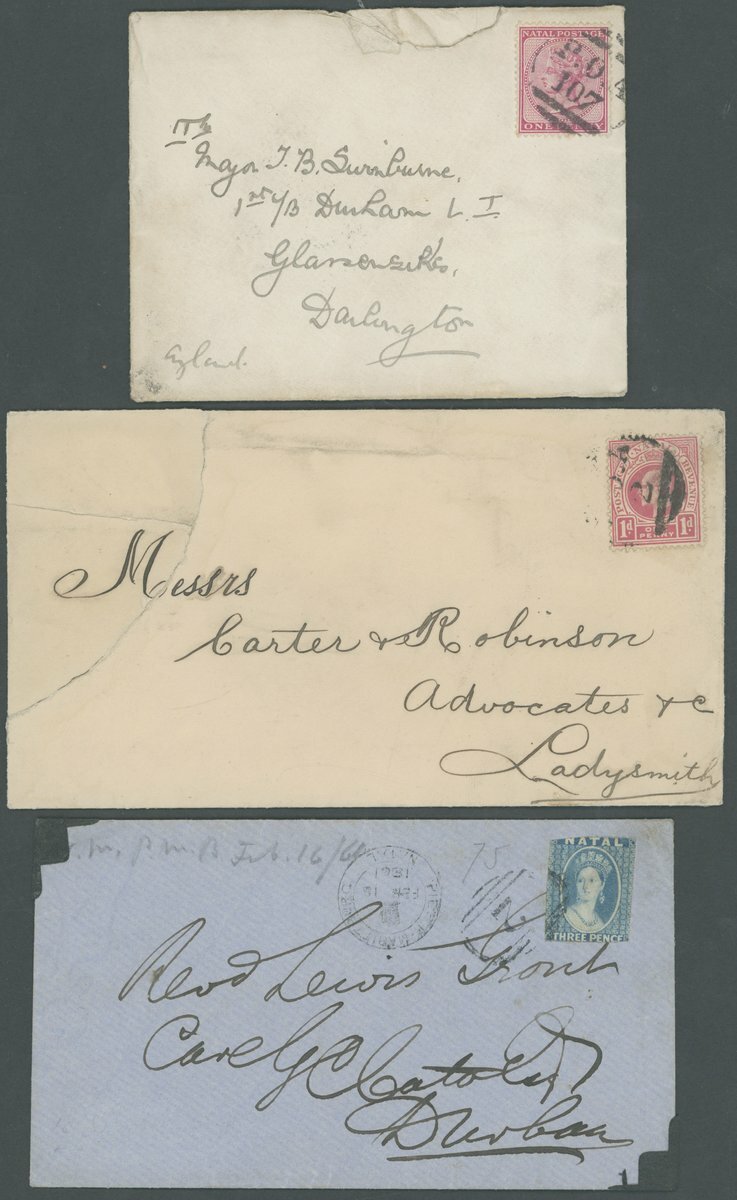 NATAL POSTAGE
P.O
107
ONE PENNY
Major T. B. Swinburne,
1st V/B Durham L. I.
Darlington
England.
POSTAGE NATAL REVENUE
1d. ONE PENNY 1d.
Messrs
Carter & Robinson
Advocates & c
Ladysmith
P. M. B Feb. 16/61
75
FEB 16
1861
2
NATAL
THREE PENCE
Revd Lewis Grout
Care G C Cato Esq
Durban